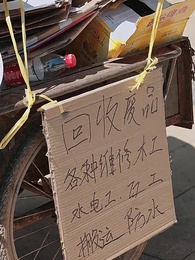 回收废品
各种维修木工
水电工.瓦工
搬运 防水